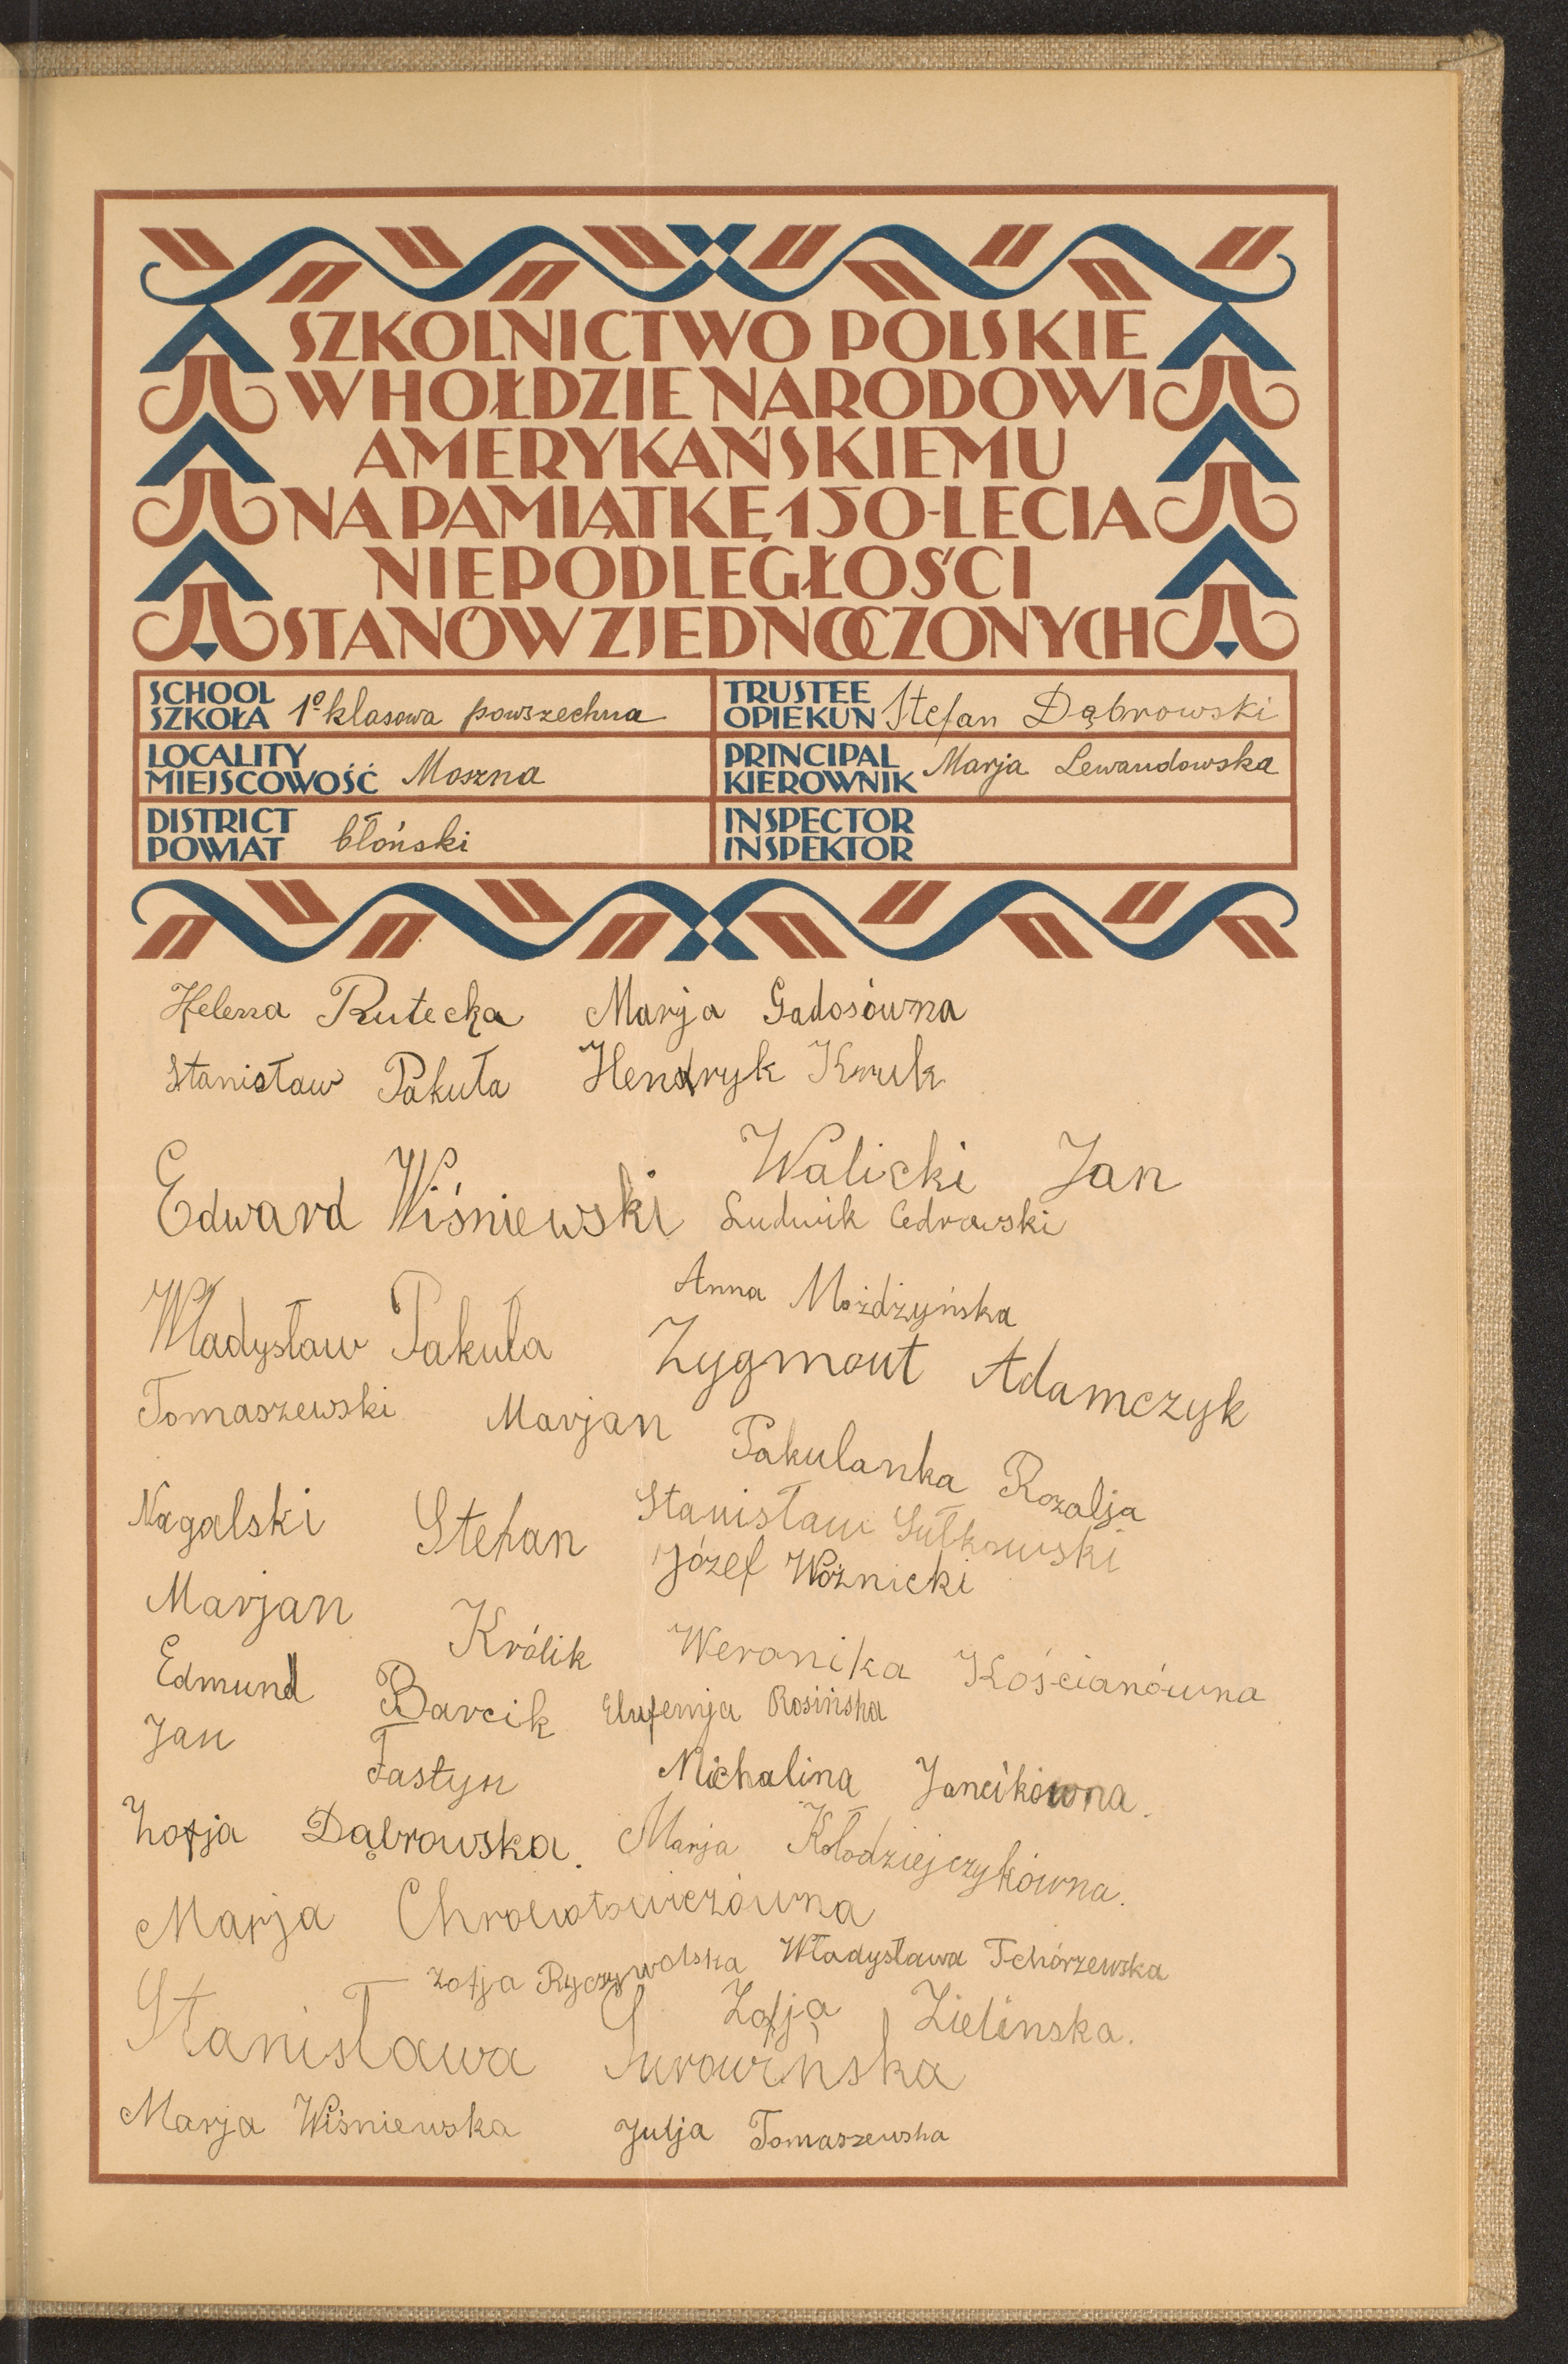 SZKOLNICTWO POLSKIE
W HOŁDZIE NARODOWI
AMERYKAŃSKIEMU
NA PAMIĄTKĘ 150-LECIA
NIEPODLEGŁOŚCI
STANÓW ZJEDNOCZONYCH
SCHOOL
SZKOŁA 1º klasowa powszechna
TRUSTEE
OPIEKUN Stefan Dąbrowski
LOCALITY
MIEJSCOWOŚĆ Moszna
PRINCIPAL
KIEROWNIK Marja Lewandowska
DISTRICT
POWIAT błoński
INSPECTOR
INSPEKTOR
Helena Rutecka Marja Gadosówna
Stanisław Pakuła Hendryk Kruk
Walicki Jan
Edward Wiśniewski Ludwik Cedrowski
Anna Możdżyńska
Władysław Pakuła Zygmont Adamczyk
Tomaszewski Marjan Pakulanka Rozalja
Nagalski Stefan Stanisław Sułkowski
Józef Woźnicki
Marjan Królik Weronika Kościanówna
Edmund Barcik Eufemja Rosińska
Jan Fastyn Michalina Jancikówna.
Zofja Dąbrowska. Marja Kołodziejczykówna.
Marja
Zofja Ryczywolska Władysława Tchórzewska
Zofja Zielinska.
Stanisława Surowińska
Marja Wiśniewska Julja Tomaszewska